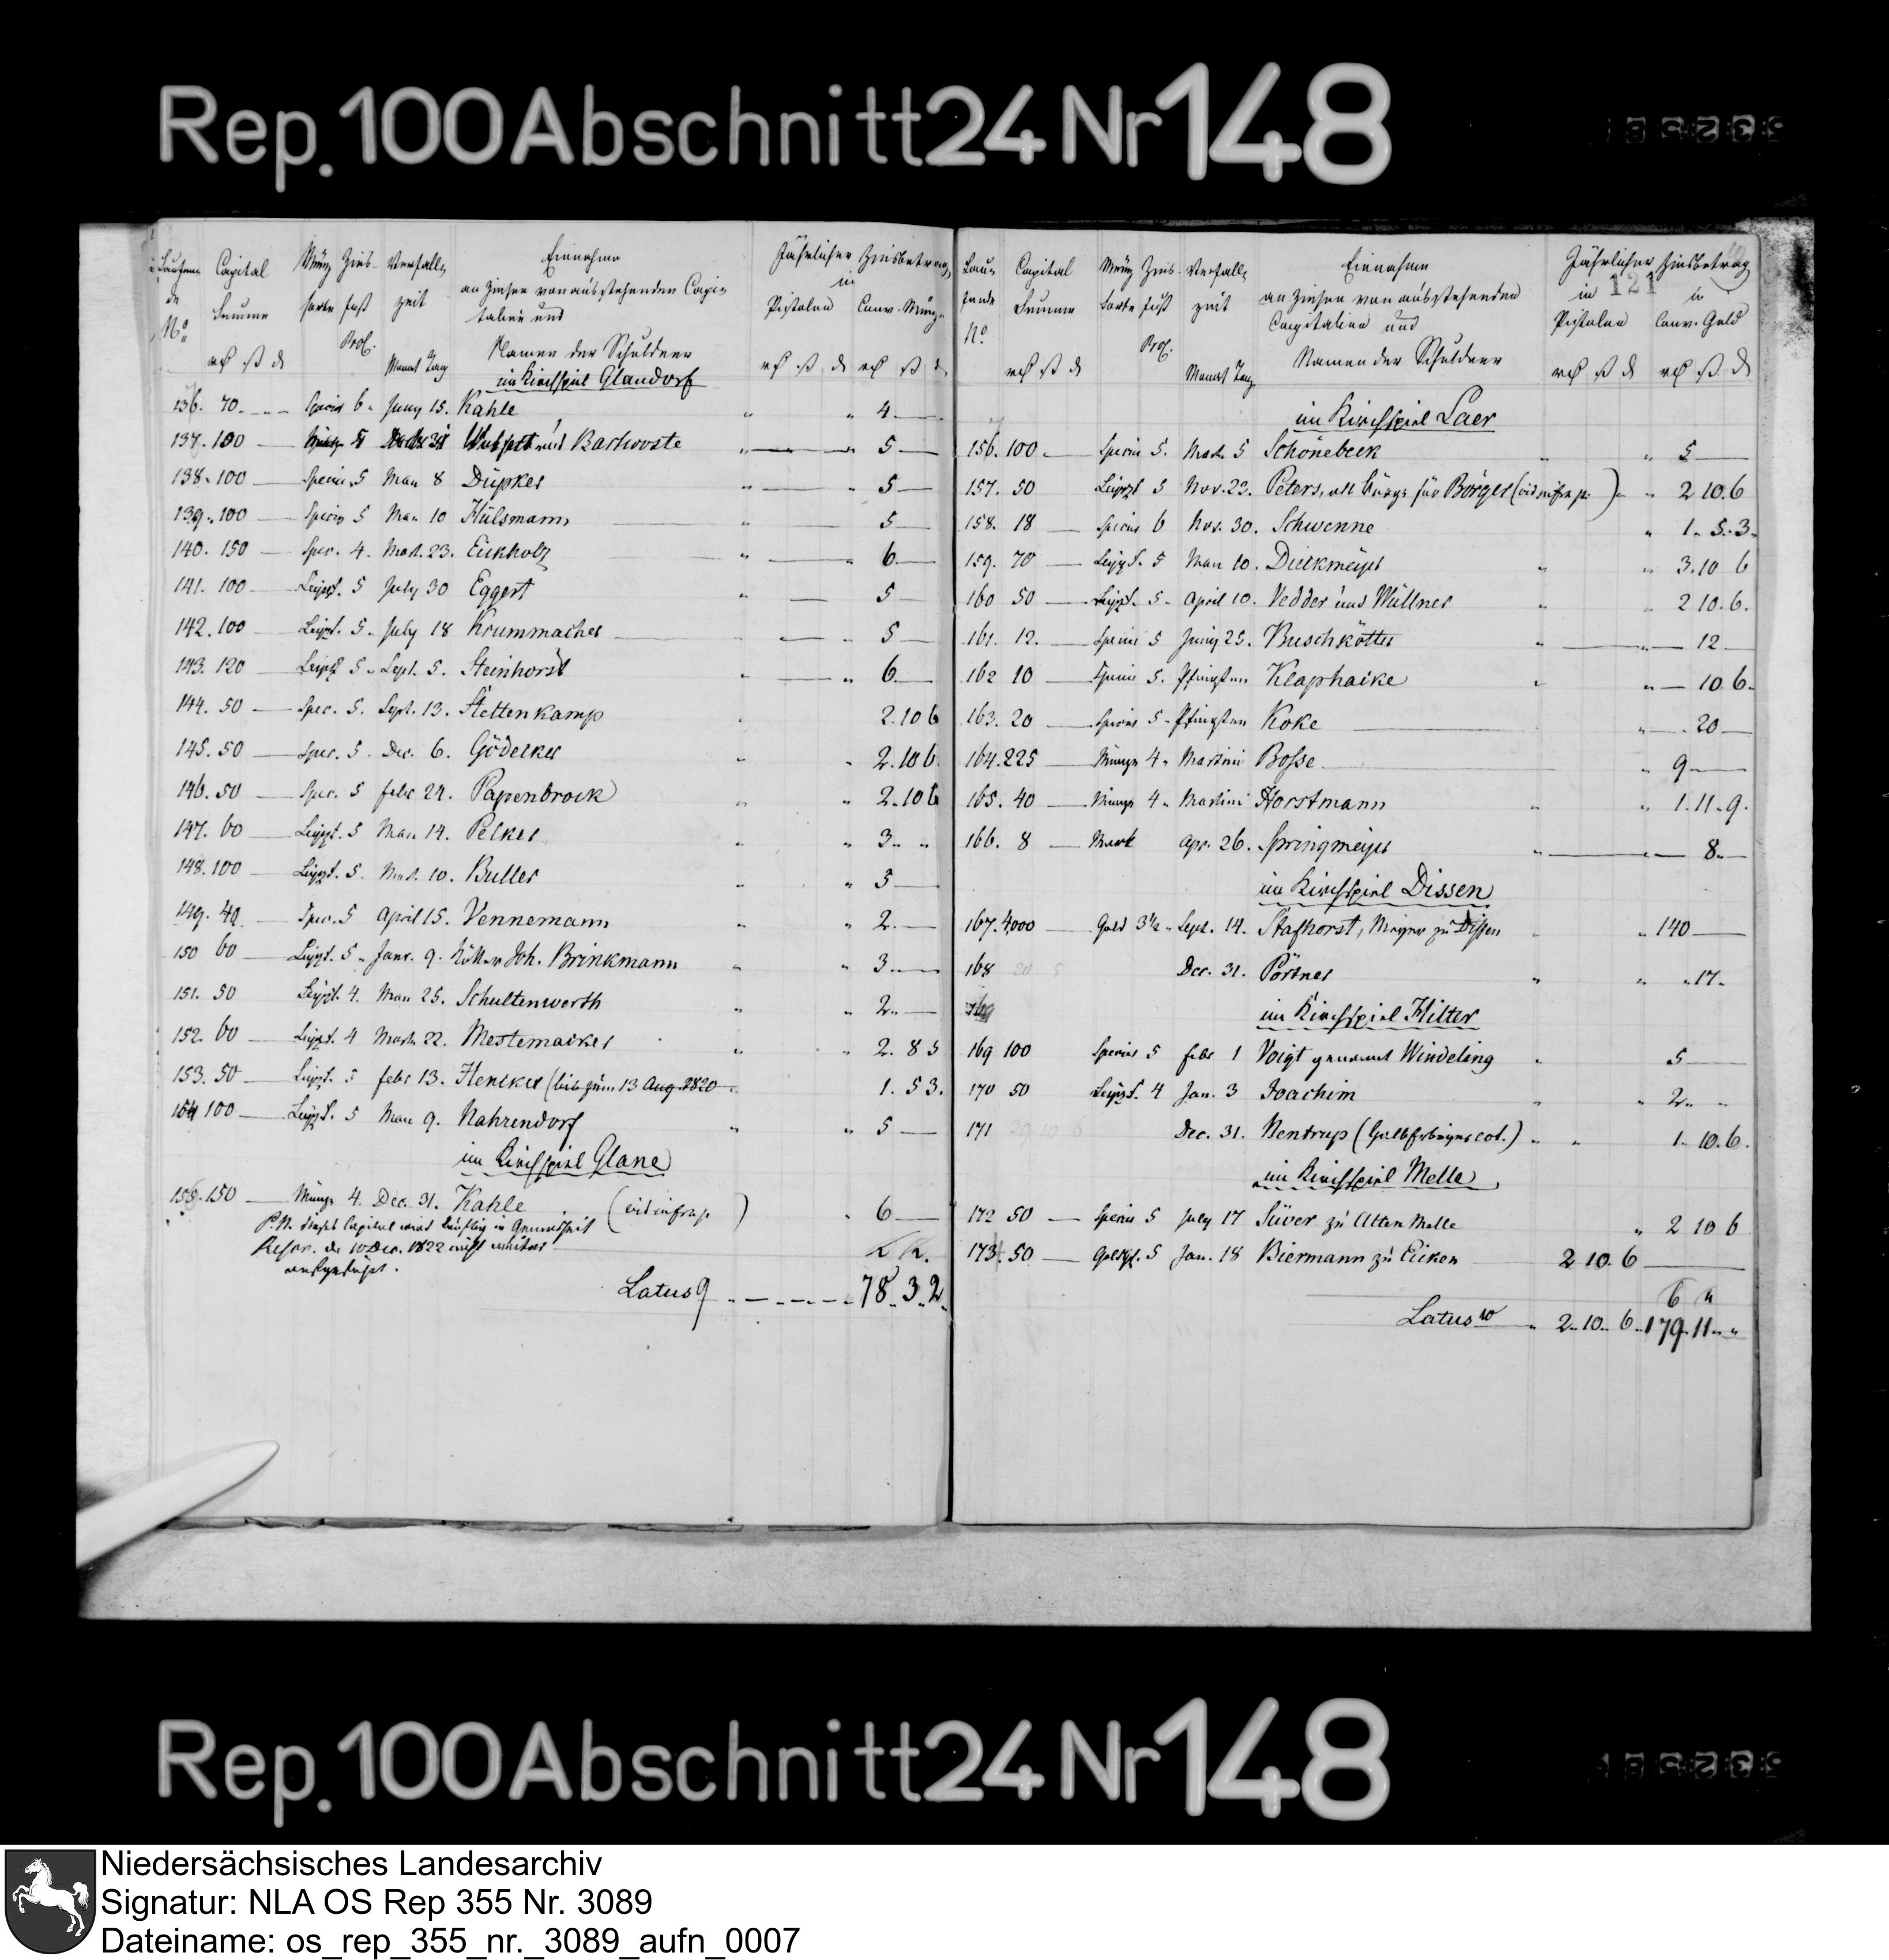 Rep. 100 Abschnitt 24 Nr 148
Laufen- Capital Münz Zins- Verfalls Einnahme Jährlicher Zinsbetrag
de Summe sorte fuß zeit an Zinsen von ausstehenden Capi- in
No talien und Pistolen Conv. Münz
Proc. Namen der Schuldner
Monat Tag im Kirchspiel Glandorf
136. 70. Species 6. Juny 15. Kahle " " 4
137. 100 5 und Barhorste " " 5
138. 100 Species 5 May 8 Düpker " " 5
139. 100 Species 5 May 10 Hülsmann " 5
140. 150 Spec. 4. Mart. 23. Eickholz " 6
141. 100 Leipz. 5 July 30 Eggert " 5
142. 100 Leipz. 5. July 18 Krummacher " 5
143. 120 Leipz 5 Sept. 5. Steinhorst " " 6
144. 50 Spec. 5. Sept. 13. Stettenkamp 2. 10 6
145. 50 Spec. 5. Dec. 6. Gödecker " " 2. 10 6
146. 50 Spec. 5 febr 24. Papenbrock " " 2. 10 6
147. 60 Leipz. 5 May 14. Pelker " " 3 " "
148. 100 Leipz. 5. Mart. 10. Buller " " 5
149. 40 Spec. 5 April 15. Vennemann " " 2
150 60 Leipz. 5 Janr. 9. Joh. Brinkmann " " 3
151. 50 Leipz. 4. May 25. Schultenwerth " " 2
152. 60 Leipz. 4 Mart. 22. Mestemacher " " 2. 8 5
153. 50 Leipz. 5 febr 13. Hencker (bis zum 13 Aug. 1820 1. 5 3.
154 100 Leipz. 5 May 9. Nahrendorf " " 5
im Kirchspiel Glane
155. 150 Münze 4. Dec. 31. Kahle (vid infra p. ) " 6
P.N. dieses Capital wird künftig in Gemäßheit
Rescr. de 10 Dec. 1822 nicht weiter
aufgeführt.
Latus 9 78. 3. 2.
Lau- Capital Münz Zins- Verfalls Einnahme Jährlicher Zinsbetrag
fende Summe sorte fuß zeit an Zinsen von ausstehenden in 121 in
No. Capitalien und Pistolen Conv. Geld
Proc. Namen der Schuldner
Monat Tag
im Kirchspiel Laer
156. 100 Species 5. Mart. 5 Schönebeck " " 5
157. 50 Leipz 5 Nov. 22. Peters, als Bürge für Börger (vid infra p. ) " 2 10. 6
158. 18 Species 6 Nov. 30. Schwenne " 1. 5. 3.
159. 70 Leipz. 5 May 10. Dieckmeyer " " 3. 10 6
160 50 Leipz. 5. April 10. Vedder und Wüllner " " 2 10. 6.
161. 12. Species 5 Juny 25. Buschkötter " " 12
162 10 Species 5. Pfingsten Klaphacke " " 10. 6.
163. 20 Species 5. Pfingsten Koke " 20
164. 225 Münze 4. Martini Bosse " 9
165. 40 Münze 4. Martini Horstmann " " 1. 11. 9.
166. 8 Mark Apr. 26. Springmeyer " " 8.
im Kirchspiel Dissen
167. 4000 Gold 3½ Sept. 14. Stafhorst, Meyer zu Dissen " " 140
168 20 5 Dec. 31. Pörtner " " 17.
169
im Kirchspiel Hilter
169 100 Species 5 febr 1 Voigt genannt Windeling " 5
170 50 Leipz. 4 Jan. 3 Joachim " " 2
171 39 10 6 Dec. 31. Nentrup (Halberbeyers col.) " " 1. 10. 6.
im Kirchspiel Melle
172 50 Species 5 July 17 Süver zu Alten Melle " 2 10 6
173. 50 Goldg. 5 Jan. 18 Biermann zu Eicken 2 10. 6
Latus 10 " 2. 10. 6. 179. 11. "
Rep. 100 Abschnitt 24 Nr 148
Niedersächsisches Landesarchiv
Signatur: NLA OS Rep 355 Nr. 3089
Dateiname: os_rep_355_nr._3089_aufn_0007